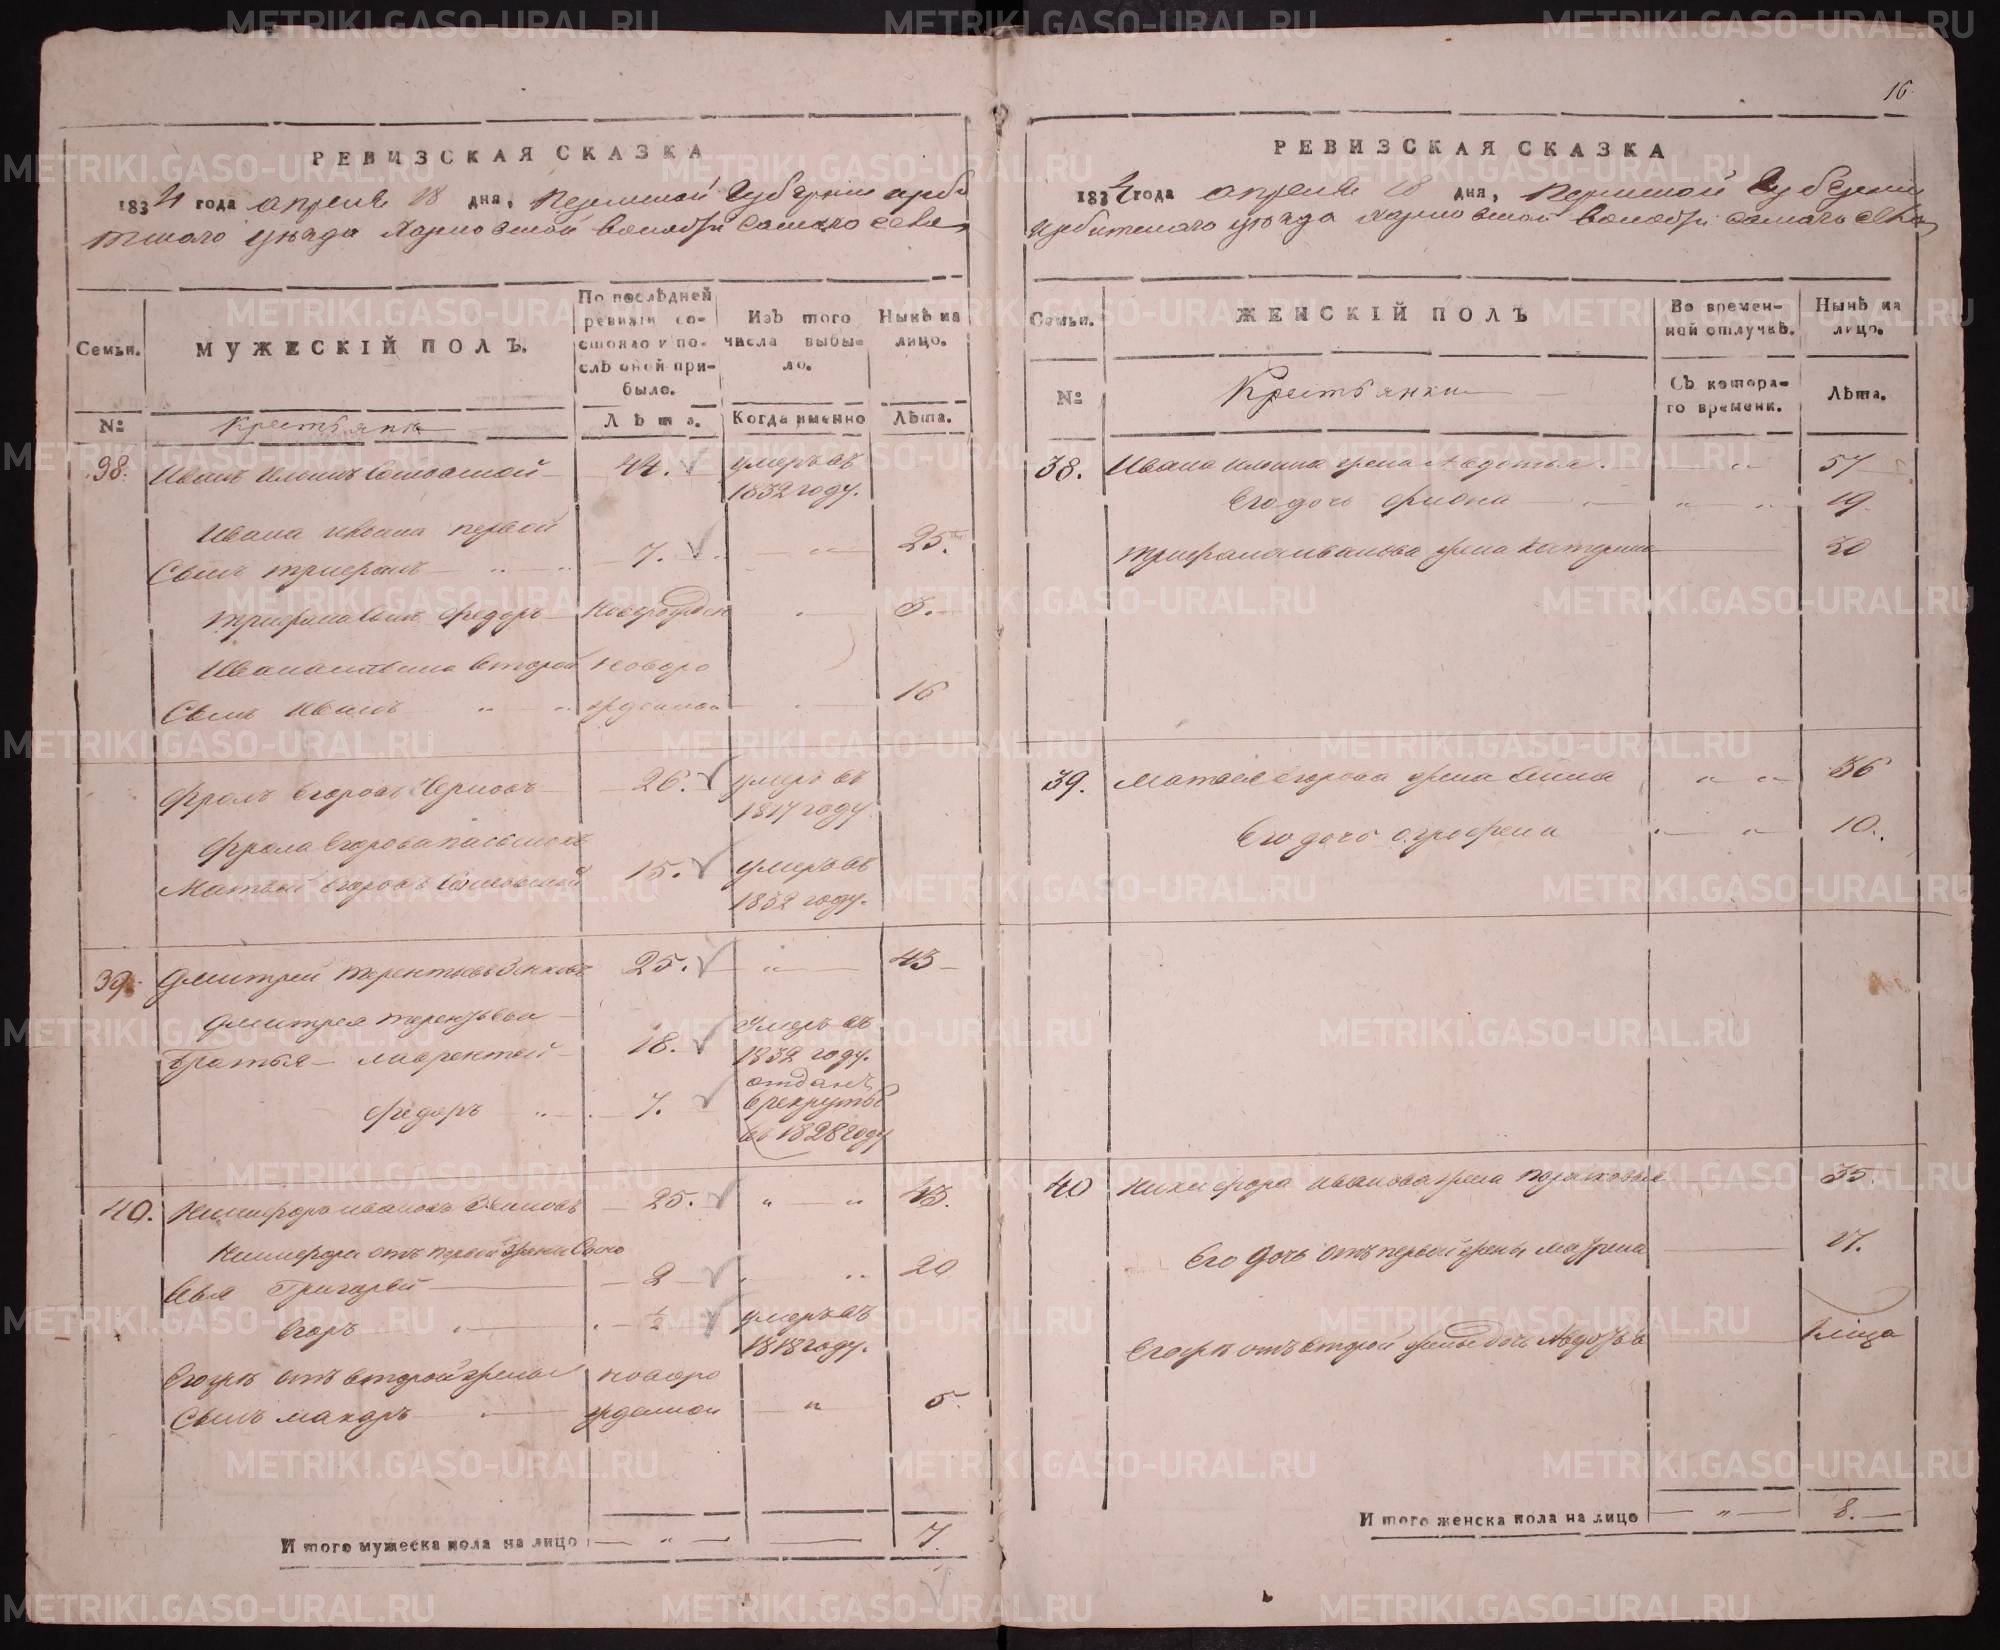 16
РЕВИЗСКАЯ СКАЗКА
1834 года апреля 18 дня, Пермской Губернии Ирби
тскаго уезда Харловской волости самаго села
Семьи.
МУЖЕСКІЙ ПОЛЪ.
По послѣдней ревизіи состояло и послѣ оной прибыло.
Изъ того числа выбыло.
Нынѣ на лицо.
№
Крестьяня
Лѣта.
Когда именно
Лѣта.
38. Иванъ Ильинъ 44. умеръ въ
1832 году.
Ивана Ильина первой
Сынъ Трифонъ 7. 25.
Трифона сынъ Федоръ Новорожден 3.
Ивана Ильина второй новоро
Сынъ Иванъ жденной 16
Фролъ Егоровъ 26. умеръ въ
1817 году
Фрола Егорова пасынокъ
Матвей Егоровъ 15. умеръ въ
1832 году.
39. Дмитрей Терентьевъ 25. 43
Дмитрея Терентьева
Братья Лаврентей 18. Умеръ въ
1832 году.
Федоръ 7. отданъ
в рекруты
въ 1828 году
40. Никифоръ Ивановъ 25. 43.
Никифора отъ первой жены Сыно
вья Григорей 2 20
Егоръ 1/2 умеръ въ
1818 году.
Егожъ отъ второй жены новоро
Сынъ Макаръ жденной 5.
И того мужеска пола на лицо 7.
РЕВИЗСКАЯ СКАЗКА
1834 года апреля 18 дня, Пермской Губернии
Ирбитскаго уезда Харловской волости самаго села
Семьи.
ЖЕНСКІЙ ПОЛЪ
Во временной отлучкѣ.
Нынѣ на лицо.
№
Крестьянки
Съ котораго времени.
Лѣта.
38. Ивана Ильина жена Авдотья 57
Его дочь Фиона 19
Трифона Иванова жена Катерина 30
39. Матвея Егорова жена Анна 36
Его дочь Огрофена 10.
40 Никифора Иванова жена Парасковья 35.
Его дочь отъ первой жены Матрена 17.
Егожъ отъ второй жены дочь Авдотья 1 лица
И того женска пола на лицо 8.
METRIKI.GASO-URAL.RU